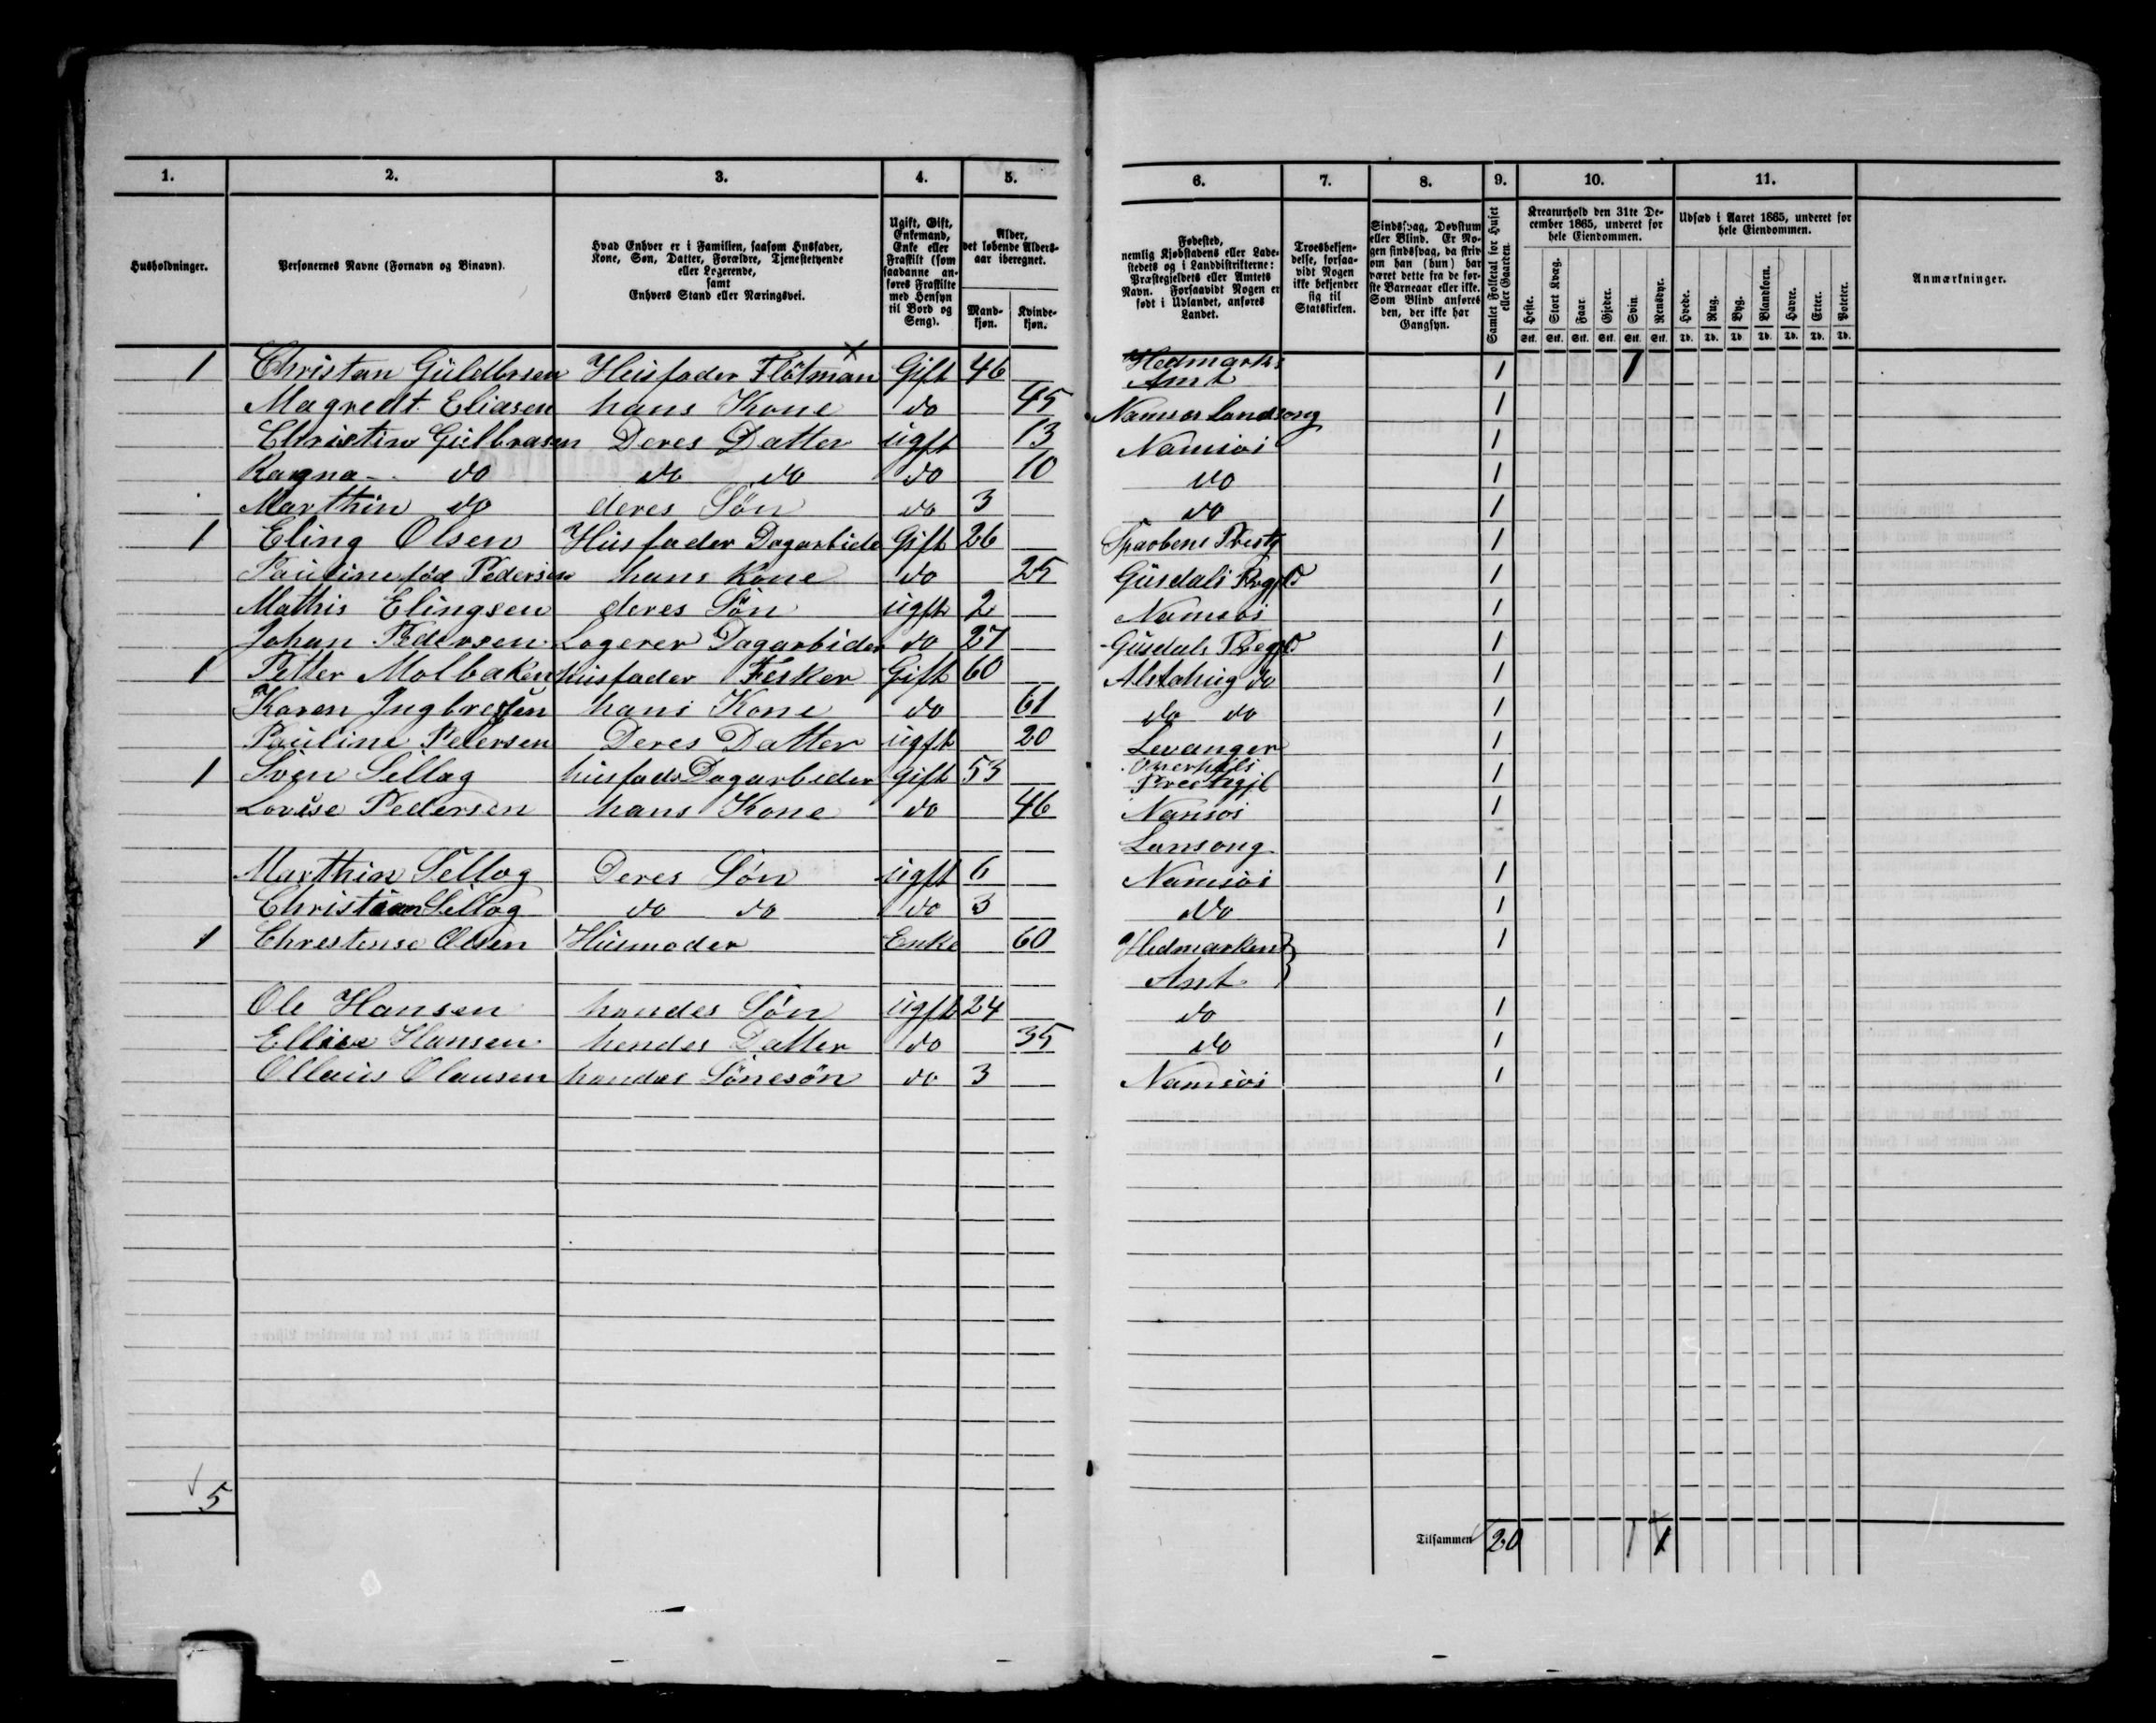 1. 2. 3. 4. 5. 6. 7. 8. 9. 10. 11.
Husholdninger.
Personernes Navne (Fornavn og Binavn).
Hvad Enhver er i Familien, saasom Husfader,
Kone, Søn, Datter, Forældre, Tjenestetyende
eller Logerende,
samt
Enhvers Stand eller Næringsvei.
Ugift, Gift,
Enkemand,
Enke eller
Fraskilt (som
saadanne an-
føres Fraskilte
med Hensyn
til Bord og
Seng).
Alder,
det løbende Alders-
aar iberegnet.
Mand-
kjøn.
Kvinde-
kjøn.
Fødested,
nemlig Kjøbstadens eller Lade-
stedets og i Landdistrikterne:
Præstegjeldets eller Amtets
Navn. Forsaavidt Nogen er
født i Udlandet, anføres
Landet.
Troesbekjen-
delse, forsaa-
vidt Nogen
ikke bekjender
sig til
Statskirken.
Sindssvag, Døvstum
eller Blind. Er No-
gen sindssvag, da skriv
om han (hun) har
været dette fra de før-
ste Barneaar eller ikke.
Som Blind anføres
den, der ikke har
Gangsyn.
Samlet Folketal for Huset
eller Gaarden.
Kreaturhold den 31te De-
cember 1865, underet for
hele Eiendommen.
Heste. Stort Kvæg. Faar. Gjeder. Svin. Rensdyr.
Stk. Stk. Stk. Stk. Stk. Stk.
Udsæd i Aaret 1865, underet for
hele Eiendommen.
Hvede. Rug. Byg. Blandkorn. Havre. Erter. Poteter.
Td. Td. Td. Td. Td. Td. Td.
Anmærkninger.
1 Christan Guldbrsen Husfader Flötman Gift 46 Hedmarks Amt 1 1
Magredt Eliasen hans Kone do 45 1
Christin Gulbrasen Deres Datter ugft 13 Namsos 1
Ragna do do do do 10 do 1
Marthin do deres Søn do 3 do 1
1 Eling Olsen Husfader Dagarbide Gift 26 1
Pauline fød Pedersen hans Kone do 25 1
Mathis Elingsen deres Søn ugft 2 Namsos 1
Johan Pedersen Logerer Dagarbider do 27 1
1 Petter Molbaken husfader Fesker Gift 60 Alstahug do 1
Karen Ingbretsen hans Kone do 61 do do 1
Pauline Petersen Deres Datter ugft 20 Levanger 1
1 Sven Sellag husfadr Dagarbeder Gift 53 Overhals Prestegjl 1
Lovise Pedersen hans Kone do 46 Namsos 1
Lansong
Marthin Sellag Deres Søn ugft 6 Namsos 1
Christian Sellag do do do 3 do 1
1 Christense Olsen Husmoder Enke 60 Hedmarken 1
Amt
Ole Hansen hendes Søn ugft 24 do 1
Ellise Hansen hendes Datter do 35 do 1
Ollaus Olausen hendes Sönesön do 3 Namsos 1
5
Tilsammen 20 1 1